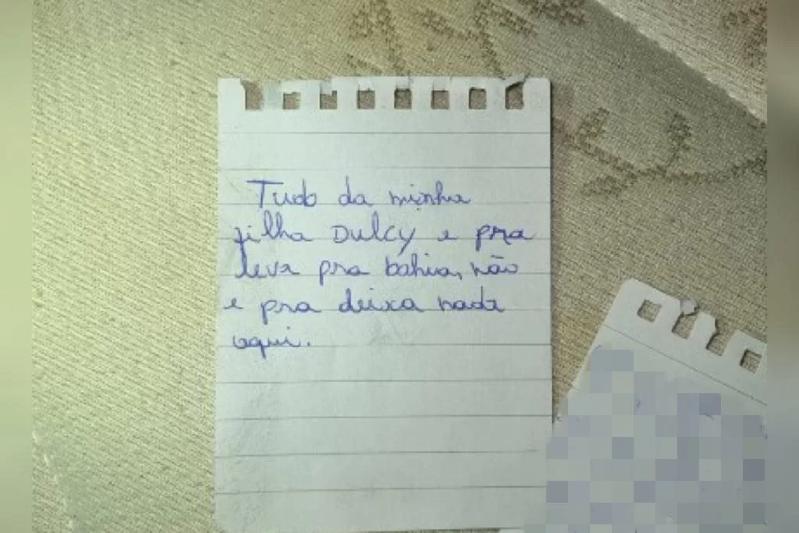 Tudo da minha
filha Dulcy e pra
leva pra bahia, não
e pra deixa nada
aqui.